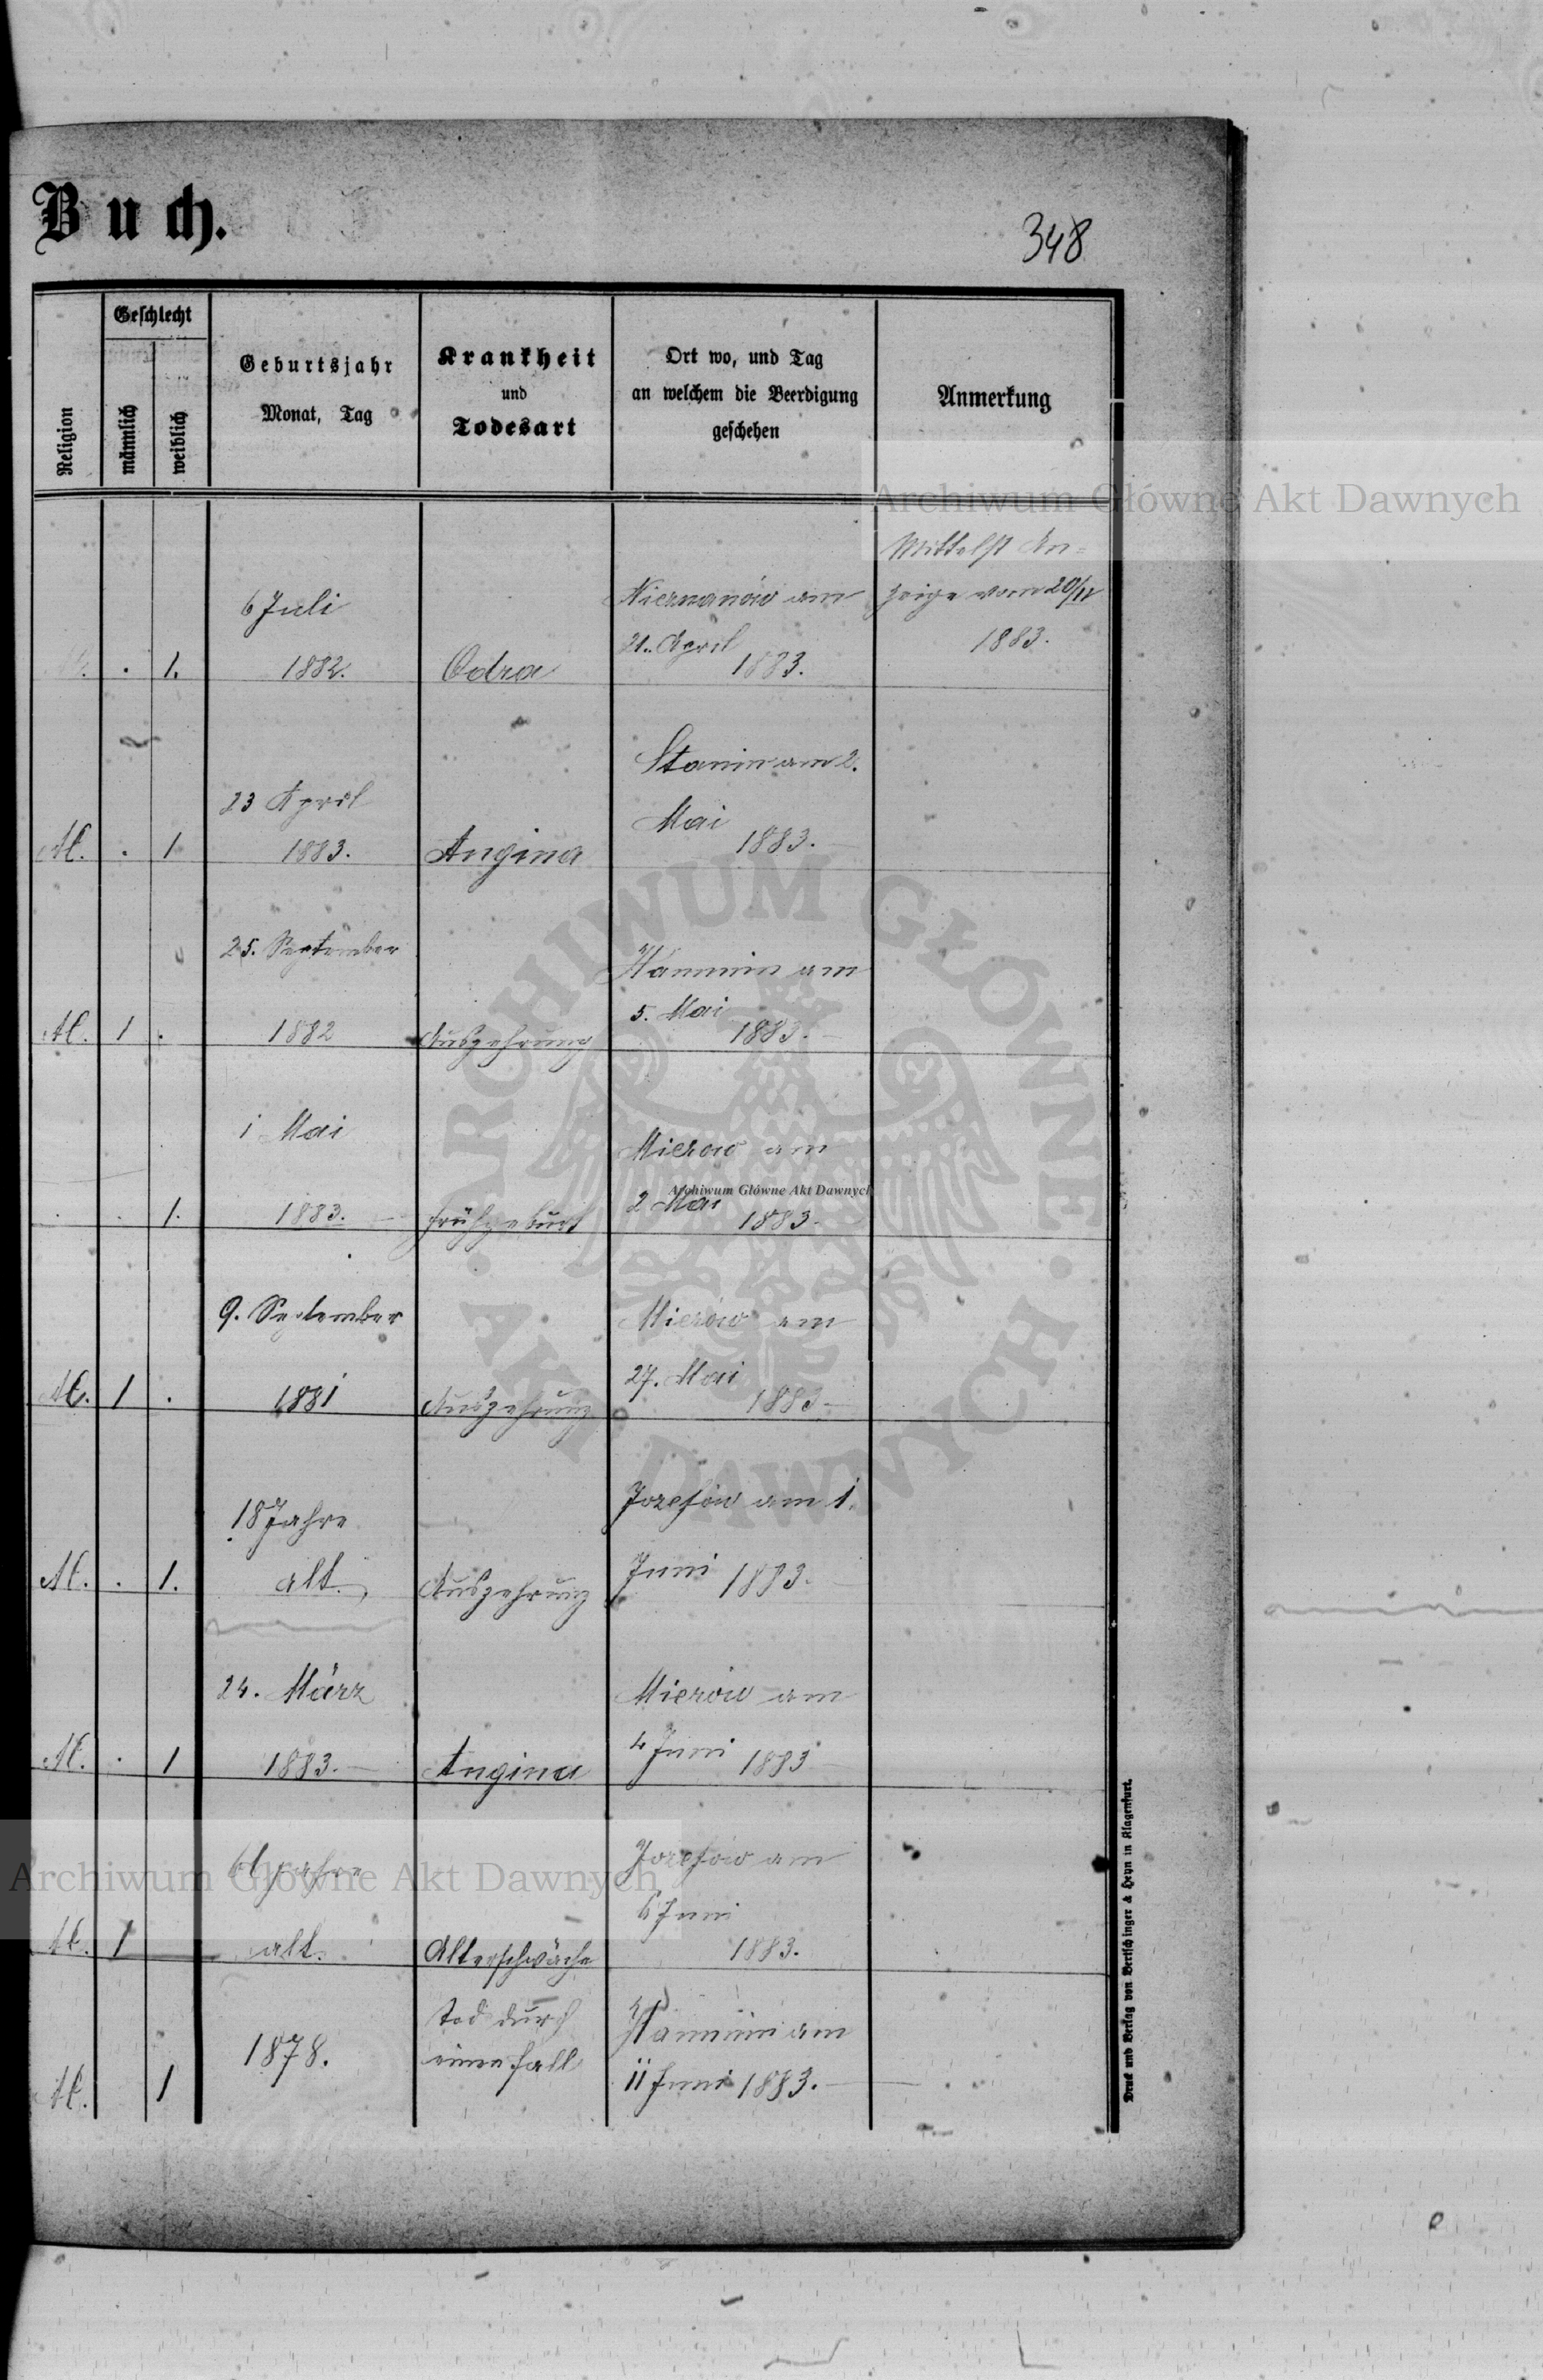 Buch.
348
Religion
Geschlecht
männlich
weiblich
Geburtsjahr
Monat, Tag
Krankheit
und
Todesart
Ort wo, und Tag
an welchem die Beerdigung
geschehen
Anmerkung
Archiwum Główne Akt Dawnych
. 1. 6 Juli
1882. Odra
am
21. April
1883.
Mittelst An=
zeige vom 20/IV
1883.
M. . 1 23 April
1883. Angina
Stanin am 2.
Mai
1883.
M. 1 . 25. September
1882 Auszehrung
am
5. Mai
1883.
. . 1. 1 Mai
1883. Frühgeburt
Mierów am
Archiwum Główne Akt Dawnych
2 Mai
1883.
M. 1 . 9. September
1881 Auszehrung
Mierów am
27. Mai
1883
M. . 1. 18 Jahre
alt. Auszehrung
Jozefów am 1.
Juni 1883.
M. . 1 24. März
1883. Angina
Mierów am
4 Juni 1883
M. 1 Jahre
alt. Altersschwäche
Jozefów am
6 Juni
1883.
Archiwum Główne Akt Dawnych
M. 1 1878.
Tod durch
einen Fall
am
11 Juni 1883.
Druck und Verlag von Bertschinger & Heyn in Klagenfurt.
ARCHIWUM GŁÓWNE · AKT DAWNYCH ·